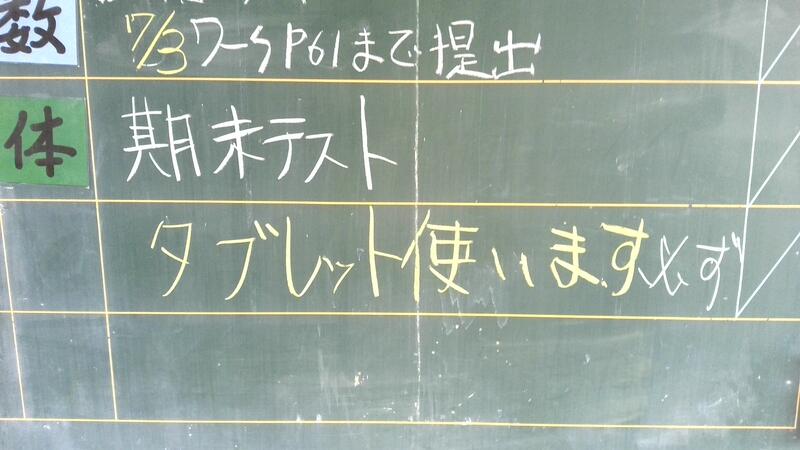 数 7/3ワークP61まで提出
体 期末テスト
タブレット使います必ず